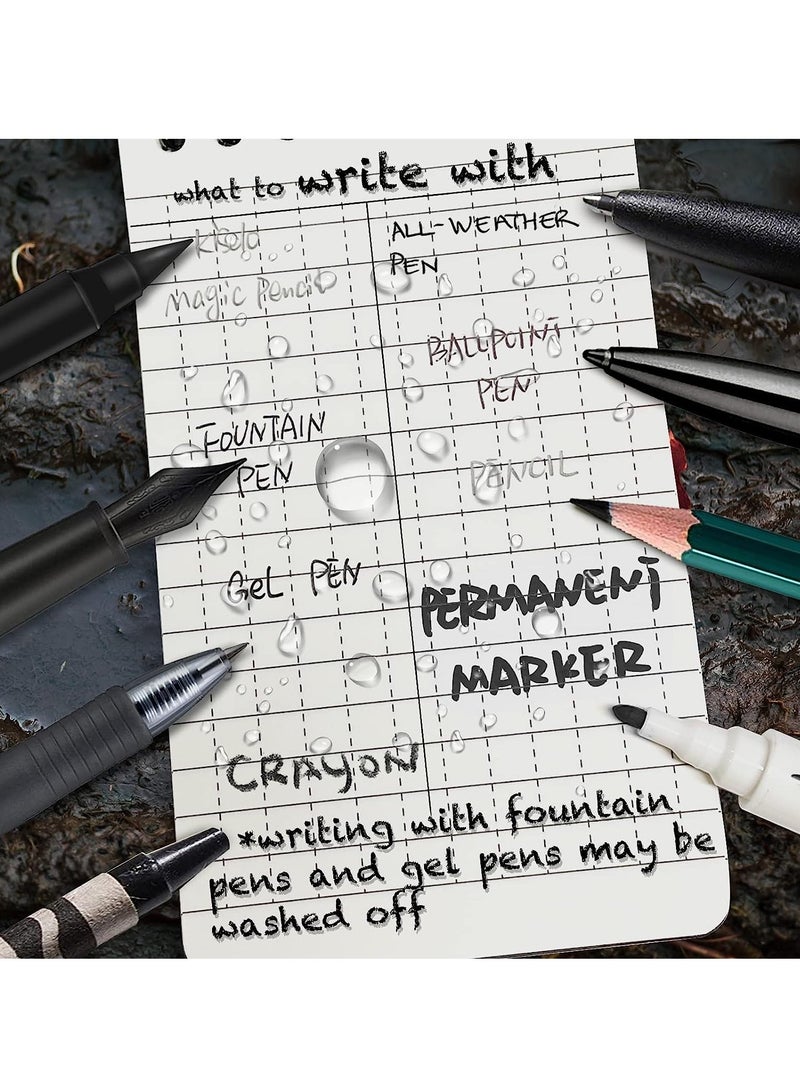 what to write with
Magic Pencil
FOUNTAIN
PEN
GeL PEN
CRAYON
ALL-WEATHER
PEN
BALLPOINT
PEN
PENCIL
PERMANENT
MARKER
*writing with fountain
pens and gel pens may be
washed off